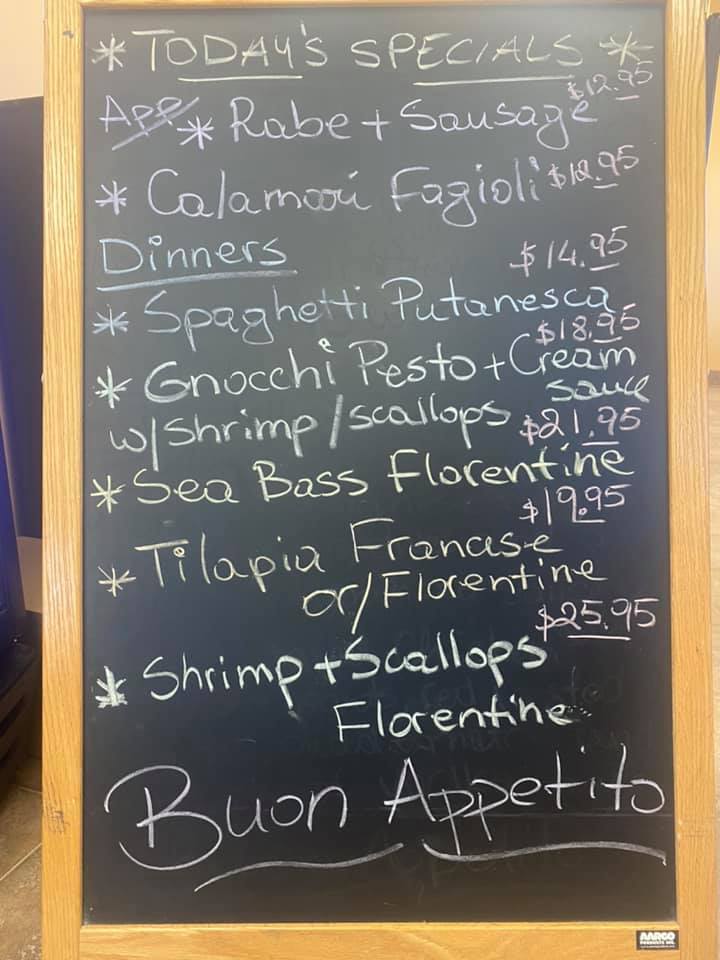 * TODAY'S SPECIALS *
$12.95
App * Rabe + Sausage
* Calamari Fagioli $12.95
Dinners $14.95
* Spaghetti Putanesca
$18.95
* Gnocchi Pesto + Cream
sauce
w/Shrimp/scallops $21.95
* Sea Bass Florentine
$19.95
* Tilapia Francise
or/Florentine
$25.95
* Shrimp + Scallops
Florentine
Buon Appetito
AARCO
PRODUCTS INC.